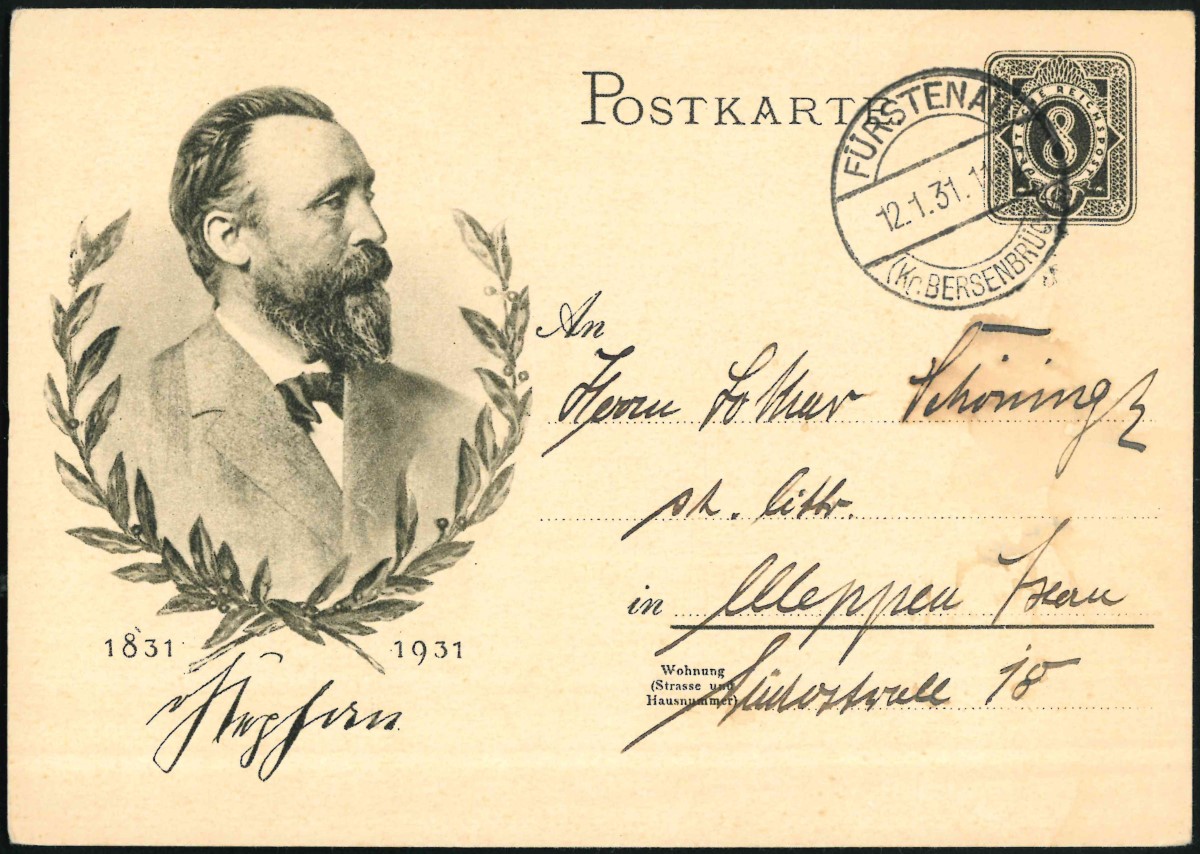 POSTKARTE
DEUTSCHE REICHSPOST
8
FÜRSTENAU
12.1.31.11
(Kr. BERSENBRÜCK)
An
Herrn Lothar Schöningh
in Meppen
Wohnung
(Strasse und
Hausnummer)
18
1831 1931
Stephan